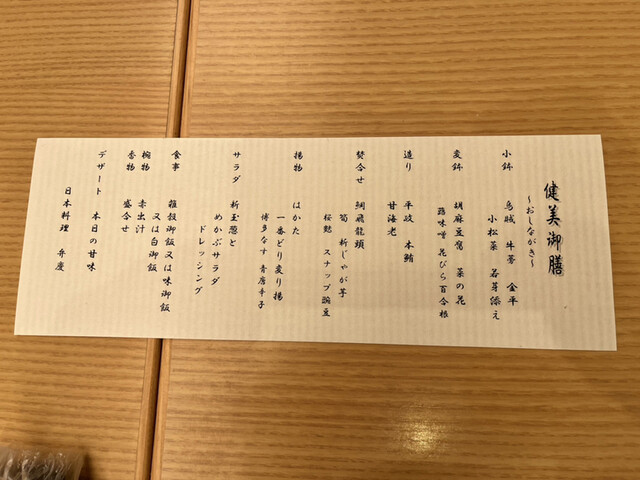 健美御膳
～おしながき～
小鉢 烏賊 牛蒡 金平
小松菜 若芽添え
変鉢 胡麻豆腐 菜の花
蕗味噌 花びら百合根
造り 平政 本鮪
甘海老
焚合せ 鯛飛龍頭
筍 新じゃが芋
桜麩 スナップ豌豆
揚物 はかた
一番どり炙り揚
博多なす 青唐辛子
サラダ 新玉葱と
めかぶサラダ
ドレッシング
食事 雑穀御飯又は味御飯
又は白御飯
椀物 赤出汁
香物 盛合せ
デザート 本日の甘味
日本料理 弁慶